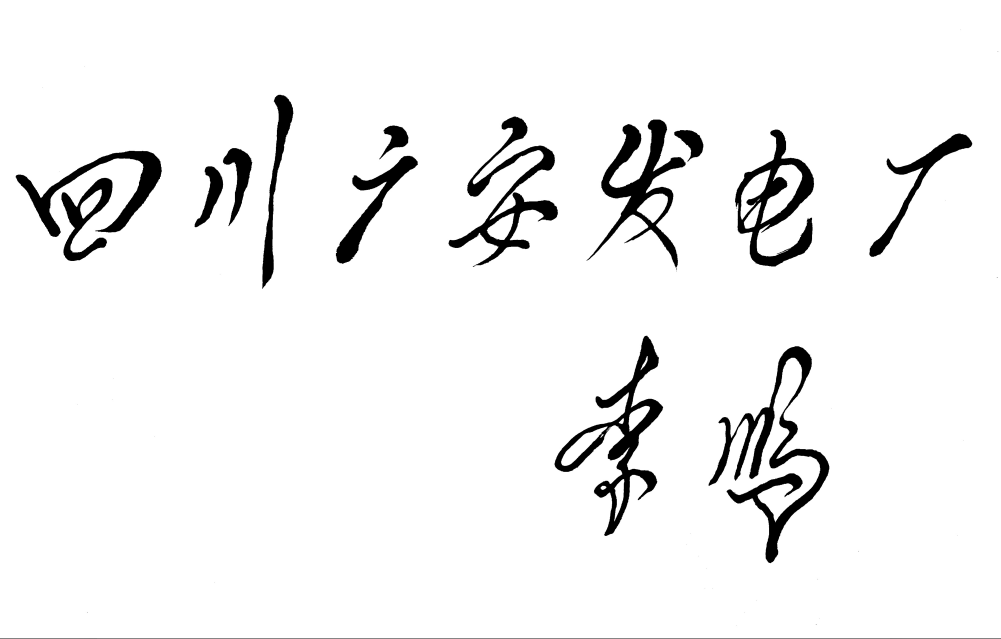 四川广安发电厂
李鹏